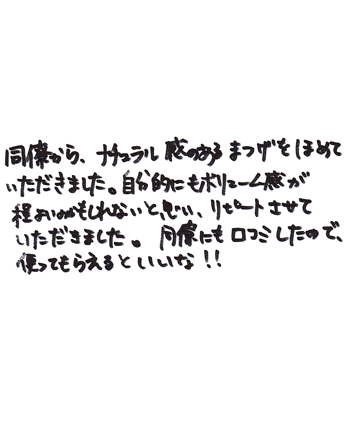 同僚から、ナチュラル感のあるまつげをほめて
いただきました。自分的にもボリューム感が
程よいかもしれないと思い、リピートさせて
いただきました。 同僚にも口コミしたので、
使ってもらえるといいな!!